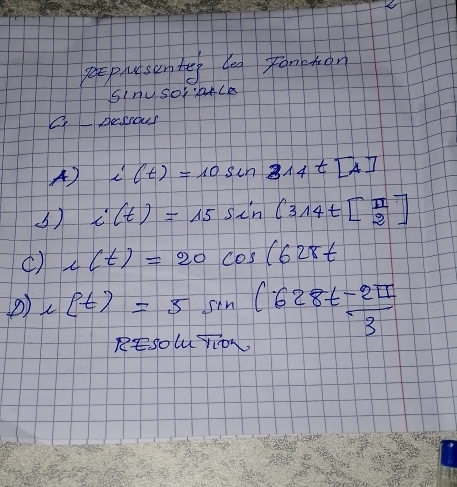 REPresentéz les Fonction
SINUSOïdale
Ci - Dessous
A) i(t) = 10 sin 314 t [A]
b) i(t) = 15 sin (314t [π/2]
C) i(t) = 20 cos (628t
D) i(t) = 5 sin (628t - 2π/3
RESOLUTION